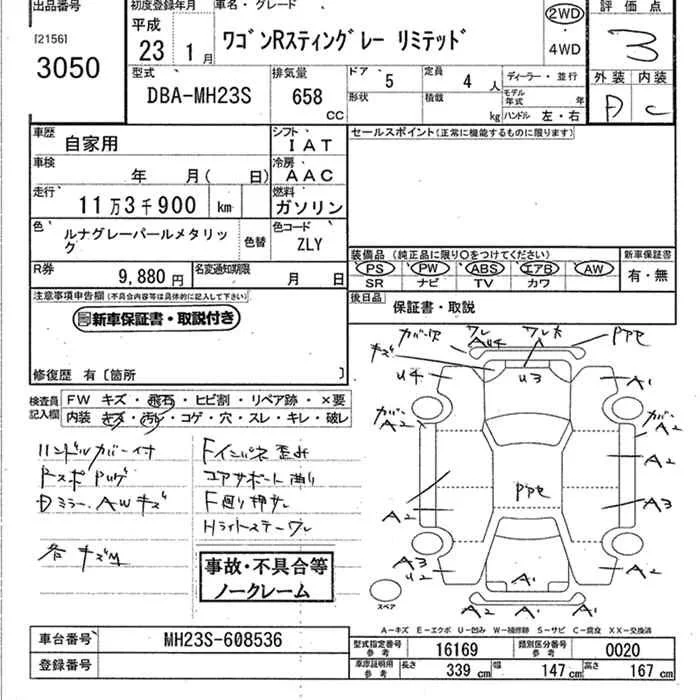 出品番号
[2156]
3050
初度登録年月
平成
23 1月
車名・グレード
ワゴンRスティングレー リミテッド
2WD
・
4WD
評価点
3
外装 内装
D C
型式
DBA-MH23S
排気量
658
CC
ドア 5
定員 4 人
形状
積載 kg
ディーラー・並行
モデル年式 年
ハンドル 左・右
車歴 自家用
シフト IAT
車検 年 月( 日)
冷房 AAC
走行 11万3千900 km
燃料 ガソリン
色 ルナグレーパールメタリック
色替
色コード ZLY
R券 9,880円
名変通知期限 月 日
セールスポイント(正常に機能するものに限ります)
装備品(純正品に限り○をつけてください)
PS PW ABS エアB AW
SR ナビ TV カワ
新車保証書
有・無
後日品 保証書・取説
注意事項申告欄(不具合内容等は具体的に記入して下さい)
新車保証書・取説付き
修復歴 有〔箇所 〕
検査員記入欄
FW キズ・飛石・ヒビ割・リペア跡・×要
内装 キズ・汚れ・コゲ・穴・スレ・キレ・破レ
ハンドルカバー付
Dミラー、AWキズ
各キズM
Fインパネ歪み
コアサポート曲り
F廻り押サレ
事故・不具合等
ノークレーム
キズ
ワレ
A4U4
PPセ
U4
U3
A1
カバー
A2
カバー
A2
A2
PPセ
A3
A2
A3
U2
A1
A2
A2 A1 A2
スペア
A-キズ E-エクボ U-凹み W-補修跡 S-サビ C-腐食 XX-交換済
車台番号 MH23S-608536
登録番号
型式指定番号 参考 16169
類別区分番号 参考 0020
車庫証明用 参考
長さ 339 cm
幅 147 cm
高さ 167 cm